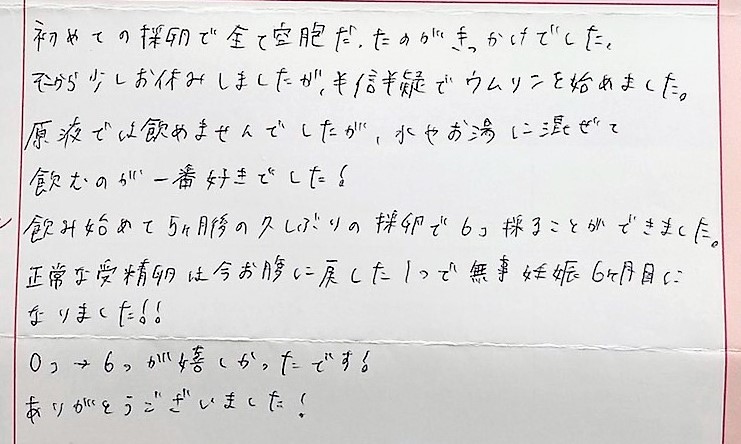 初めての採卵で全て空胞だったのがきっかけでした。
そこから少しお休みしましたが、半信半疑でウムリンを始めました。
原液では飲めませんでしたが、水やお湯に混ぜて
飲むのが一番好きでした！
飲み始めて5ヶ月後の久しぶりの採卵で6コ採ることができました。
正常な受精卵は今お腹に戻した1つで無事妊娠6ヶ月目に
なりました！！
0コ→6コが嬉しかったです！
ありがとうございました！